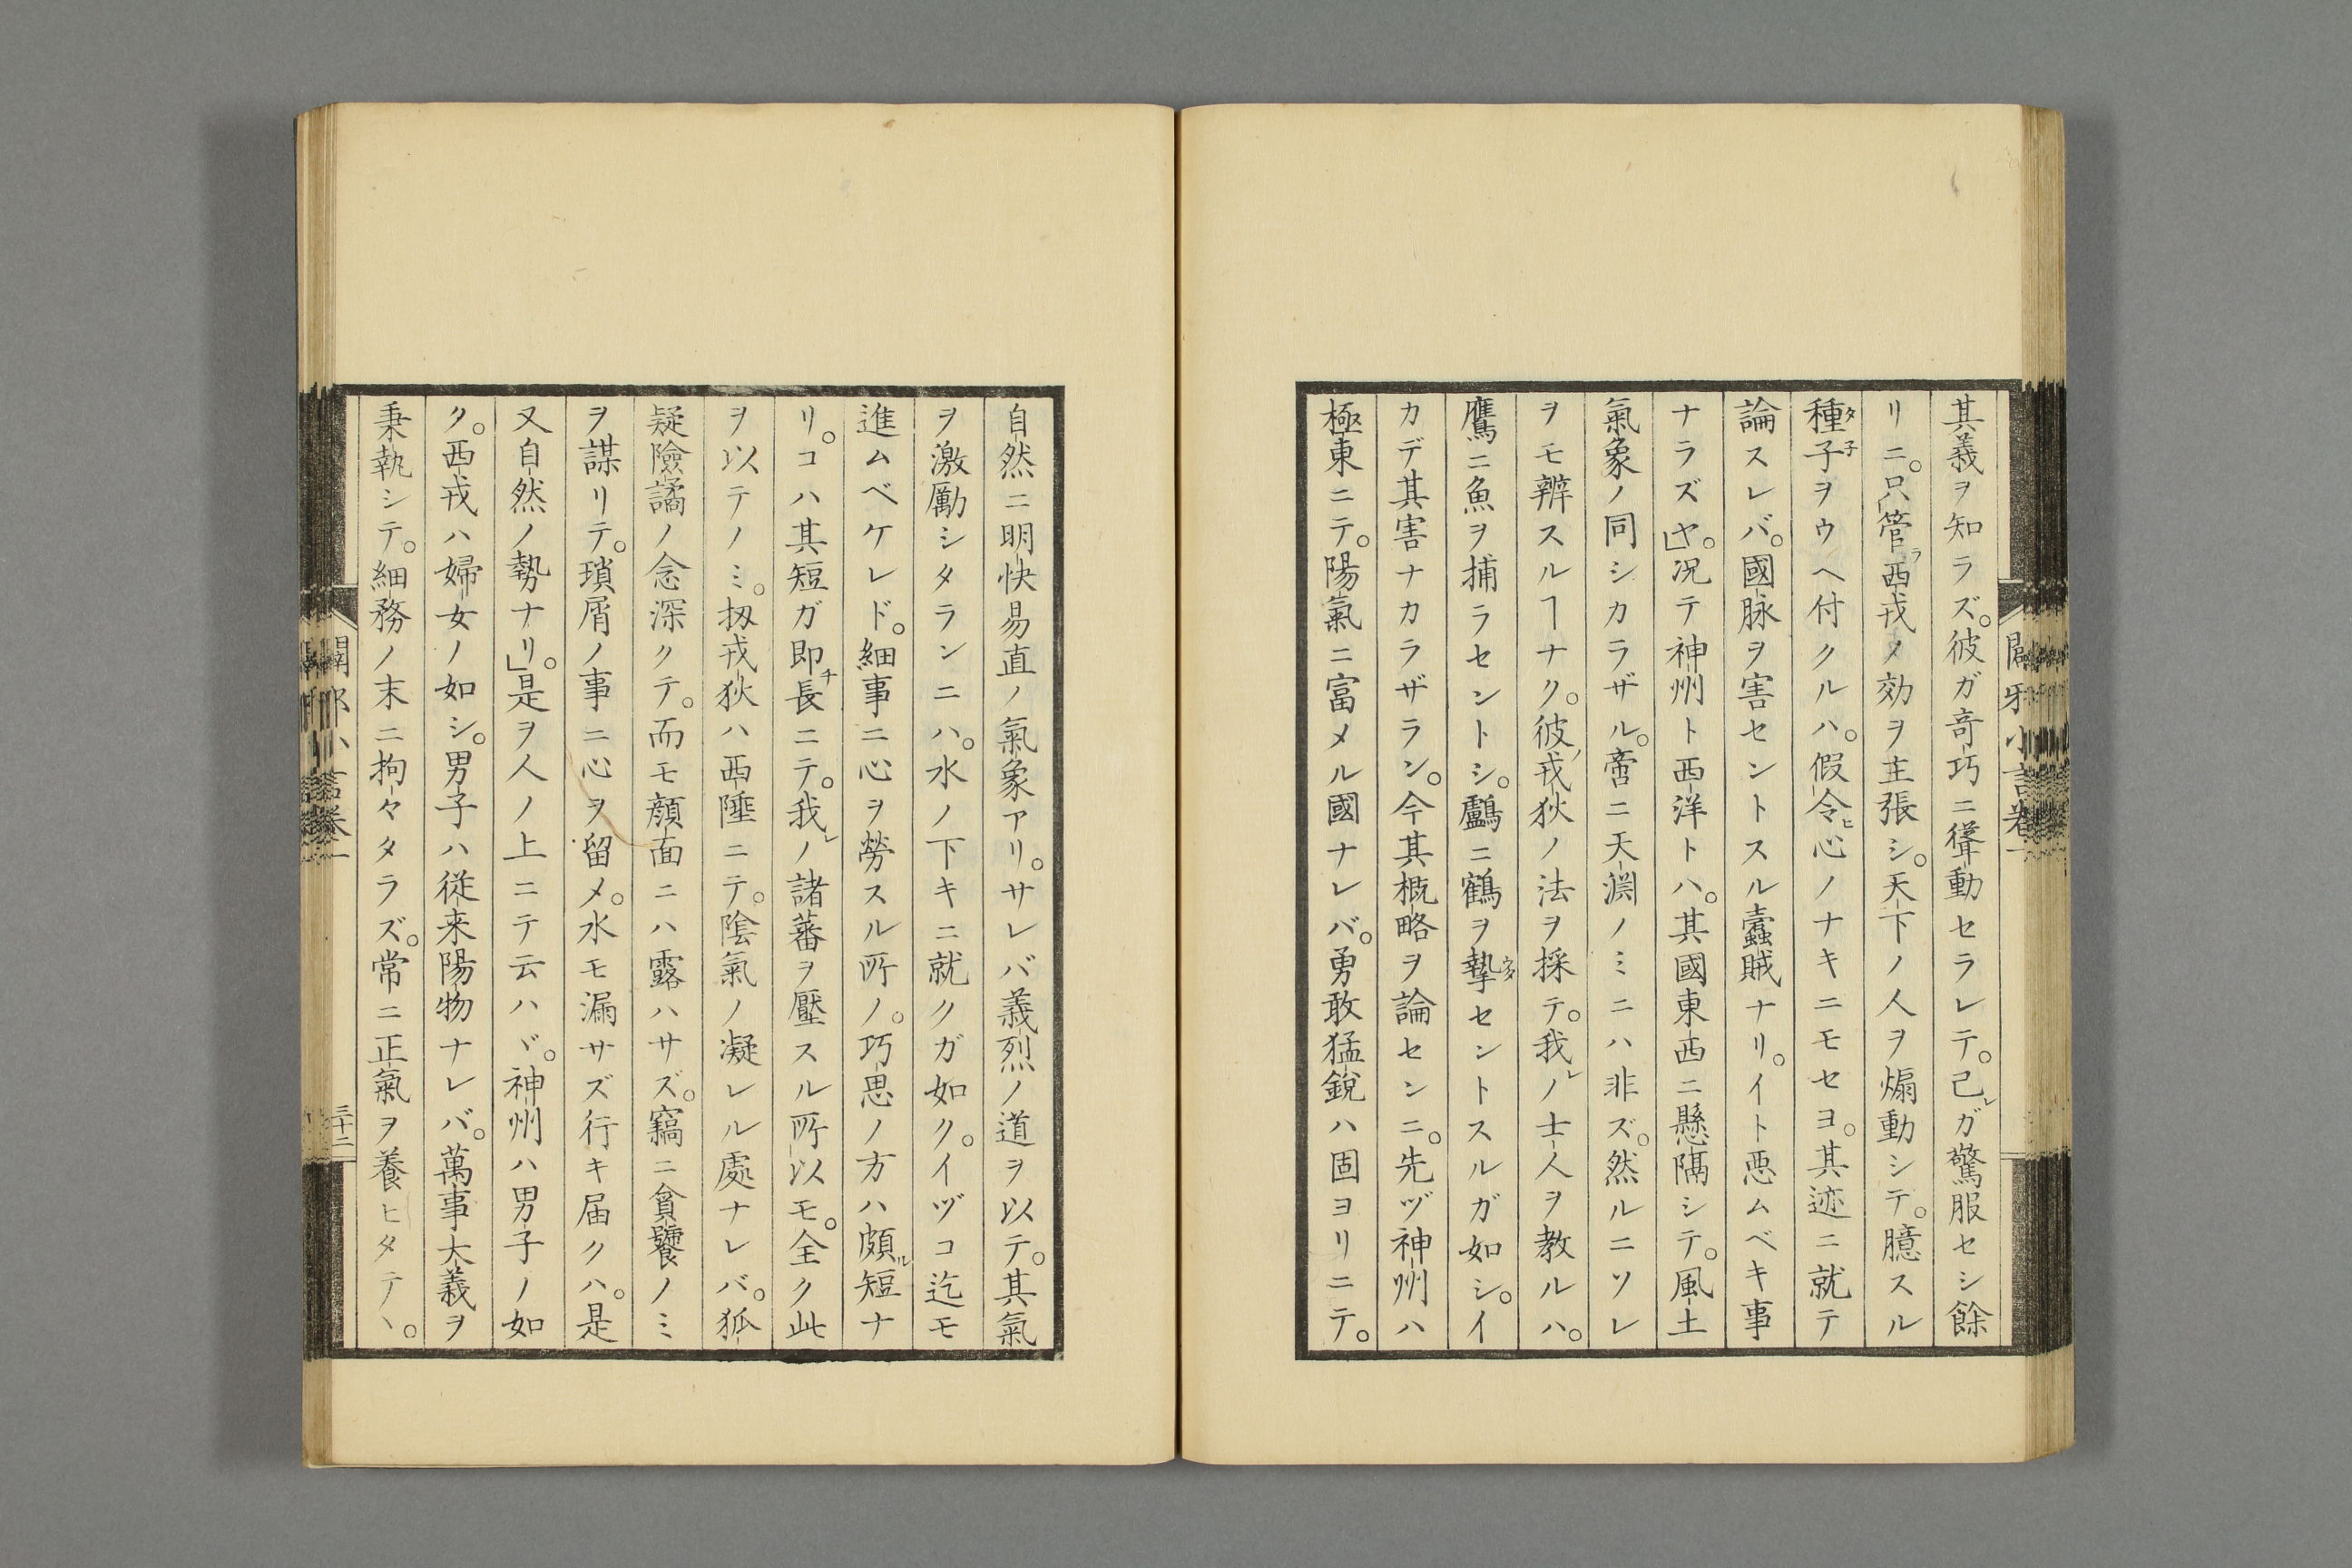 其義ヲ知ラズ。彼ガ竒巧ニ聳動セラレテ。己レガ驚服セシ餘
リニ。只管ラ西戎ノ効ヲ主張シ。天下ノ人ヲ煽動シテ。臆スル
種子ヲウヘ付クルハ。假令ヒ心ノナキニモセヨ。其迹ニ就テ
論スレバ。國脉ヲ害セントスル蠧賊ナリ。イト悪ムベキ事
ナラズヤ。」况テ神州ト西洋トハ。其國東西ニ懸隔シテ。風土
氣象ノ同シカラザル。啻ニ天淵ノミニハ非ズ。然ルニソレ
ヲモ辨スルヿナク。彼ノ戎狄ノ法ヲ採テ。我レノ士人ヲ教ルハ。
鷹ニ魚ヲ捕ラセントシ。鸕ニ鶴ヲ摯セントスルガ如シ。イ
カデ其害ナカラザラン。今其概略ヲ論センニ。先ヅ神州ハ
極東ニテ。陽氣ニ富メル國ナレバ。勇敢猛鋭ハ固ヨリニテ。
自然ニ明快易直ノ氣象アリ。サレバ義烈ノ道ヲ以テ。其氣
ヲ激勵シタランニハ。水ノ下キニ就クガ如ク。イヅコ迄モ
進ムベケレド。細事ニ心ヲ勞スル所ノ。巧思ノ方ハ頗ル短ナ
リ。コハ其短ガ即チ長ニテ。我レノ諸蕃ヲ壓スル所以モ。全ク此
ヲ以テノミ。扨戎狄ハ西陲ニテ。陰氣ノ凝レル處ナレバ。狐
疑險譎ノ念深クテ。而モ顔面ニハ露ハサズ。竊ニ貪饕ノミ
ヲ謀リテ。瑣屑ノ事ニ心ヲ留メ。水モ漏サズ行キ届クハ。是
又自然ノ勢ナリ。」是ヲ人ノ上ニテ云ハヾ。神州ハ男子ノ如
ク。西戎ハ婦女ノ如シ。男子ハ従来陽物ナレバ。萬事大義ヲ
秉執シテ。細務ノ末ニ拘々タラズ。常ニ正氣ヲ養ヒタテヽ。
闢邪小言巻一
三十二